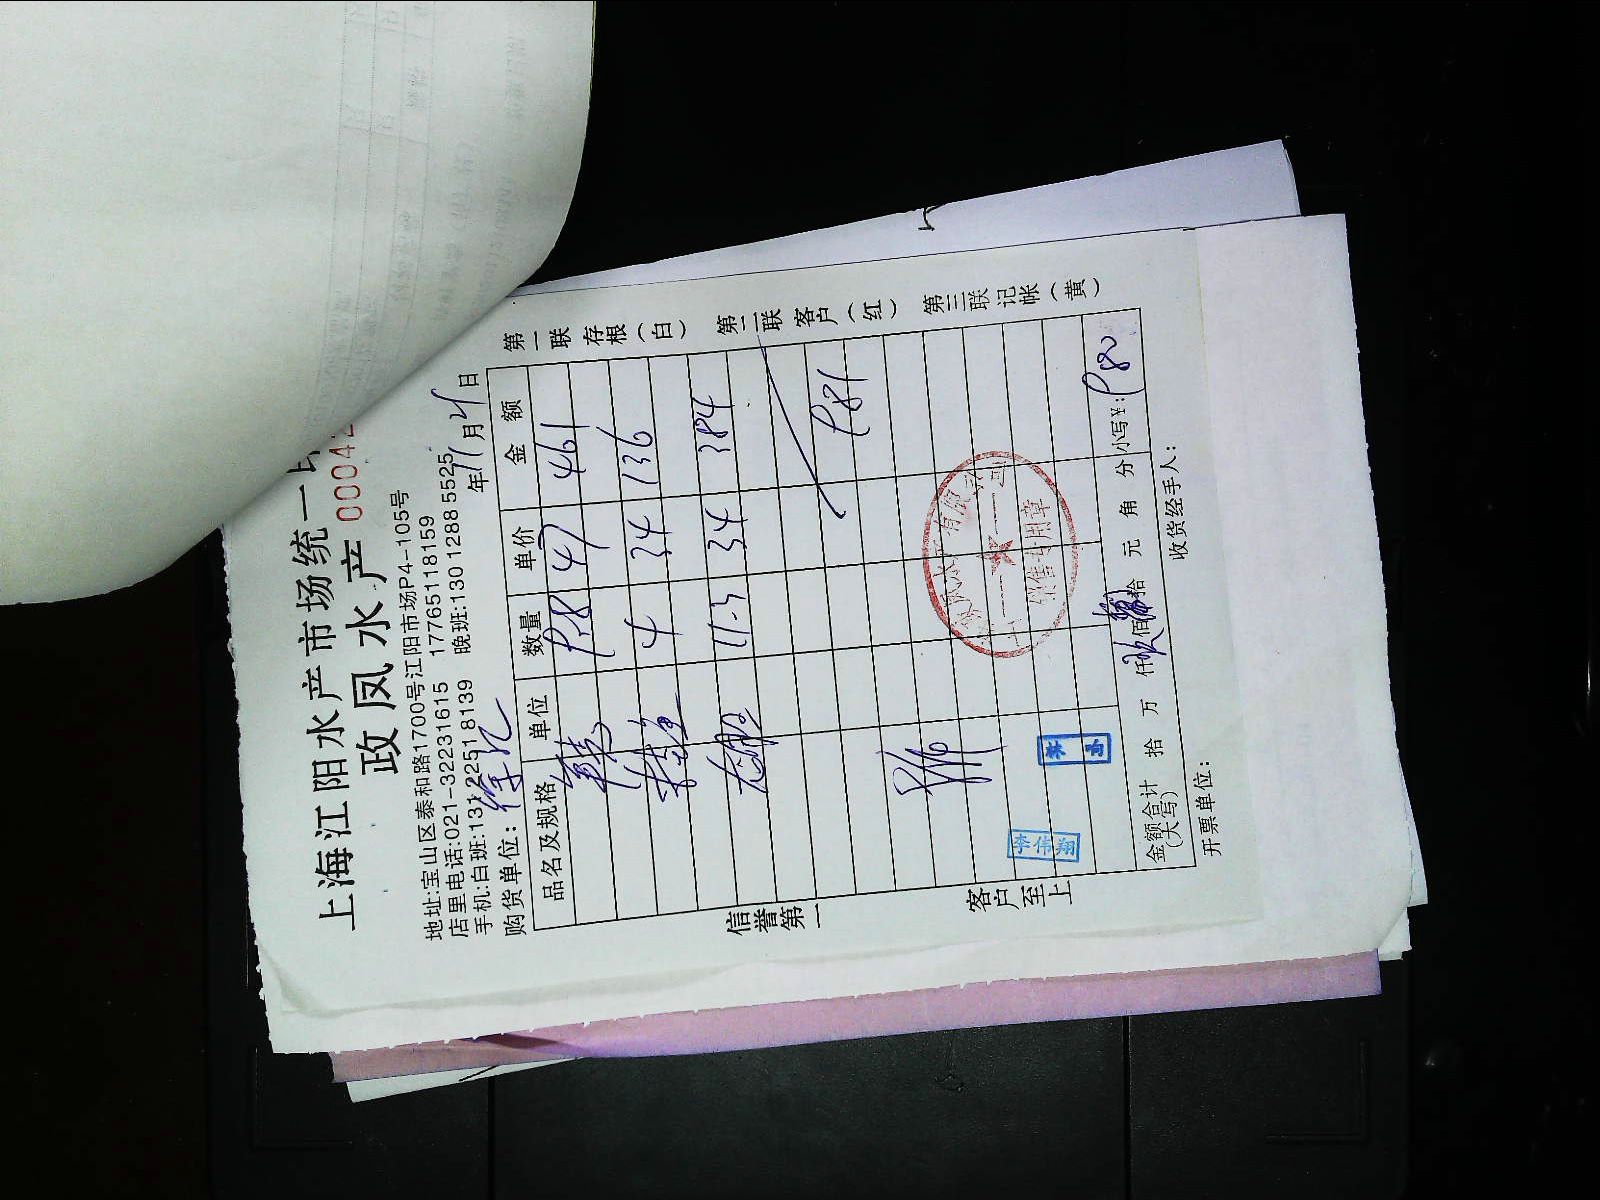 上海江阳水产市场统一
政凤水产 0004
地址:宝山区泰和路1700号江阳市场P4-105号
店里电话:021-32231615 17765118159
手机:白班:131 2251 8139 晚班:130 1288 5525
购货单位: 徐记 年 11 月 21 日
品名及规格 单位 数量 单价 金额
9.8 47 461
4 34 136
11.3 34 384
981
金额合计(大写) 拾 万 仟 佰 拾 元 角 分 小写¥: 980
开票单位: 收货经手人:
第一联 存根(白) 第二联 客户(红) 第三联 记帐(黄)
信誉第一 客户至上
李伟翔
销售专用章